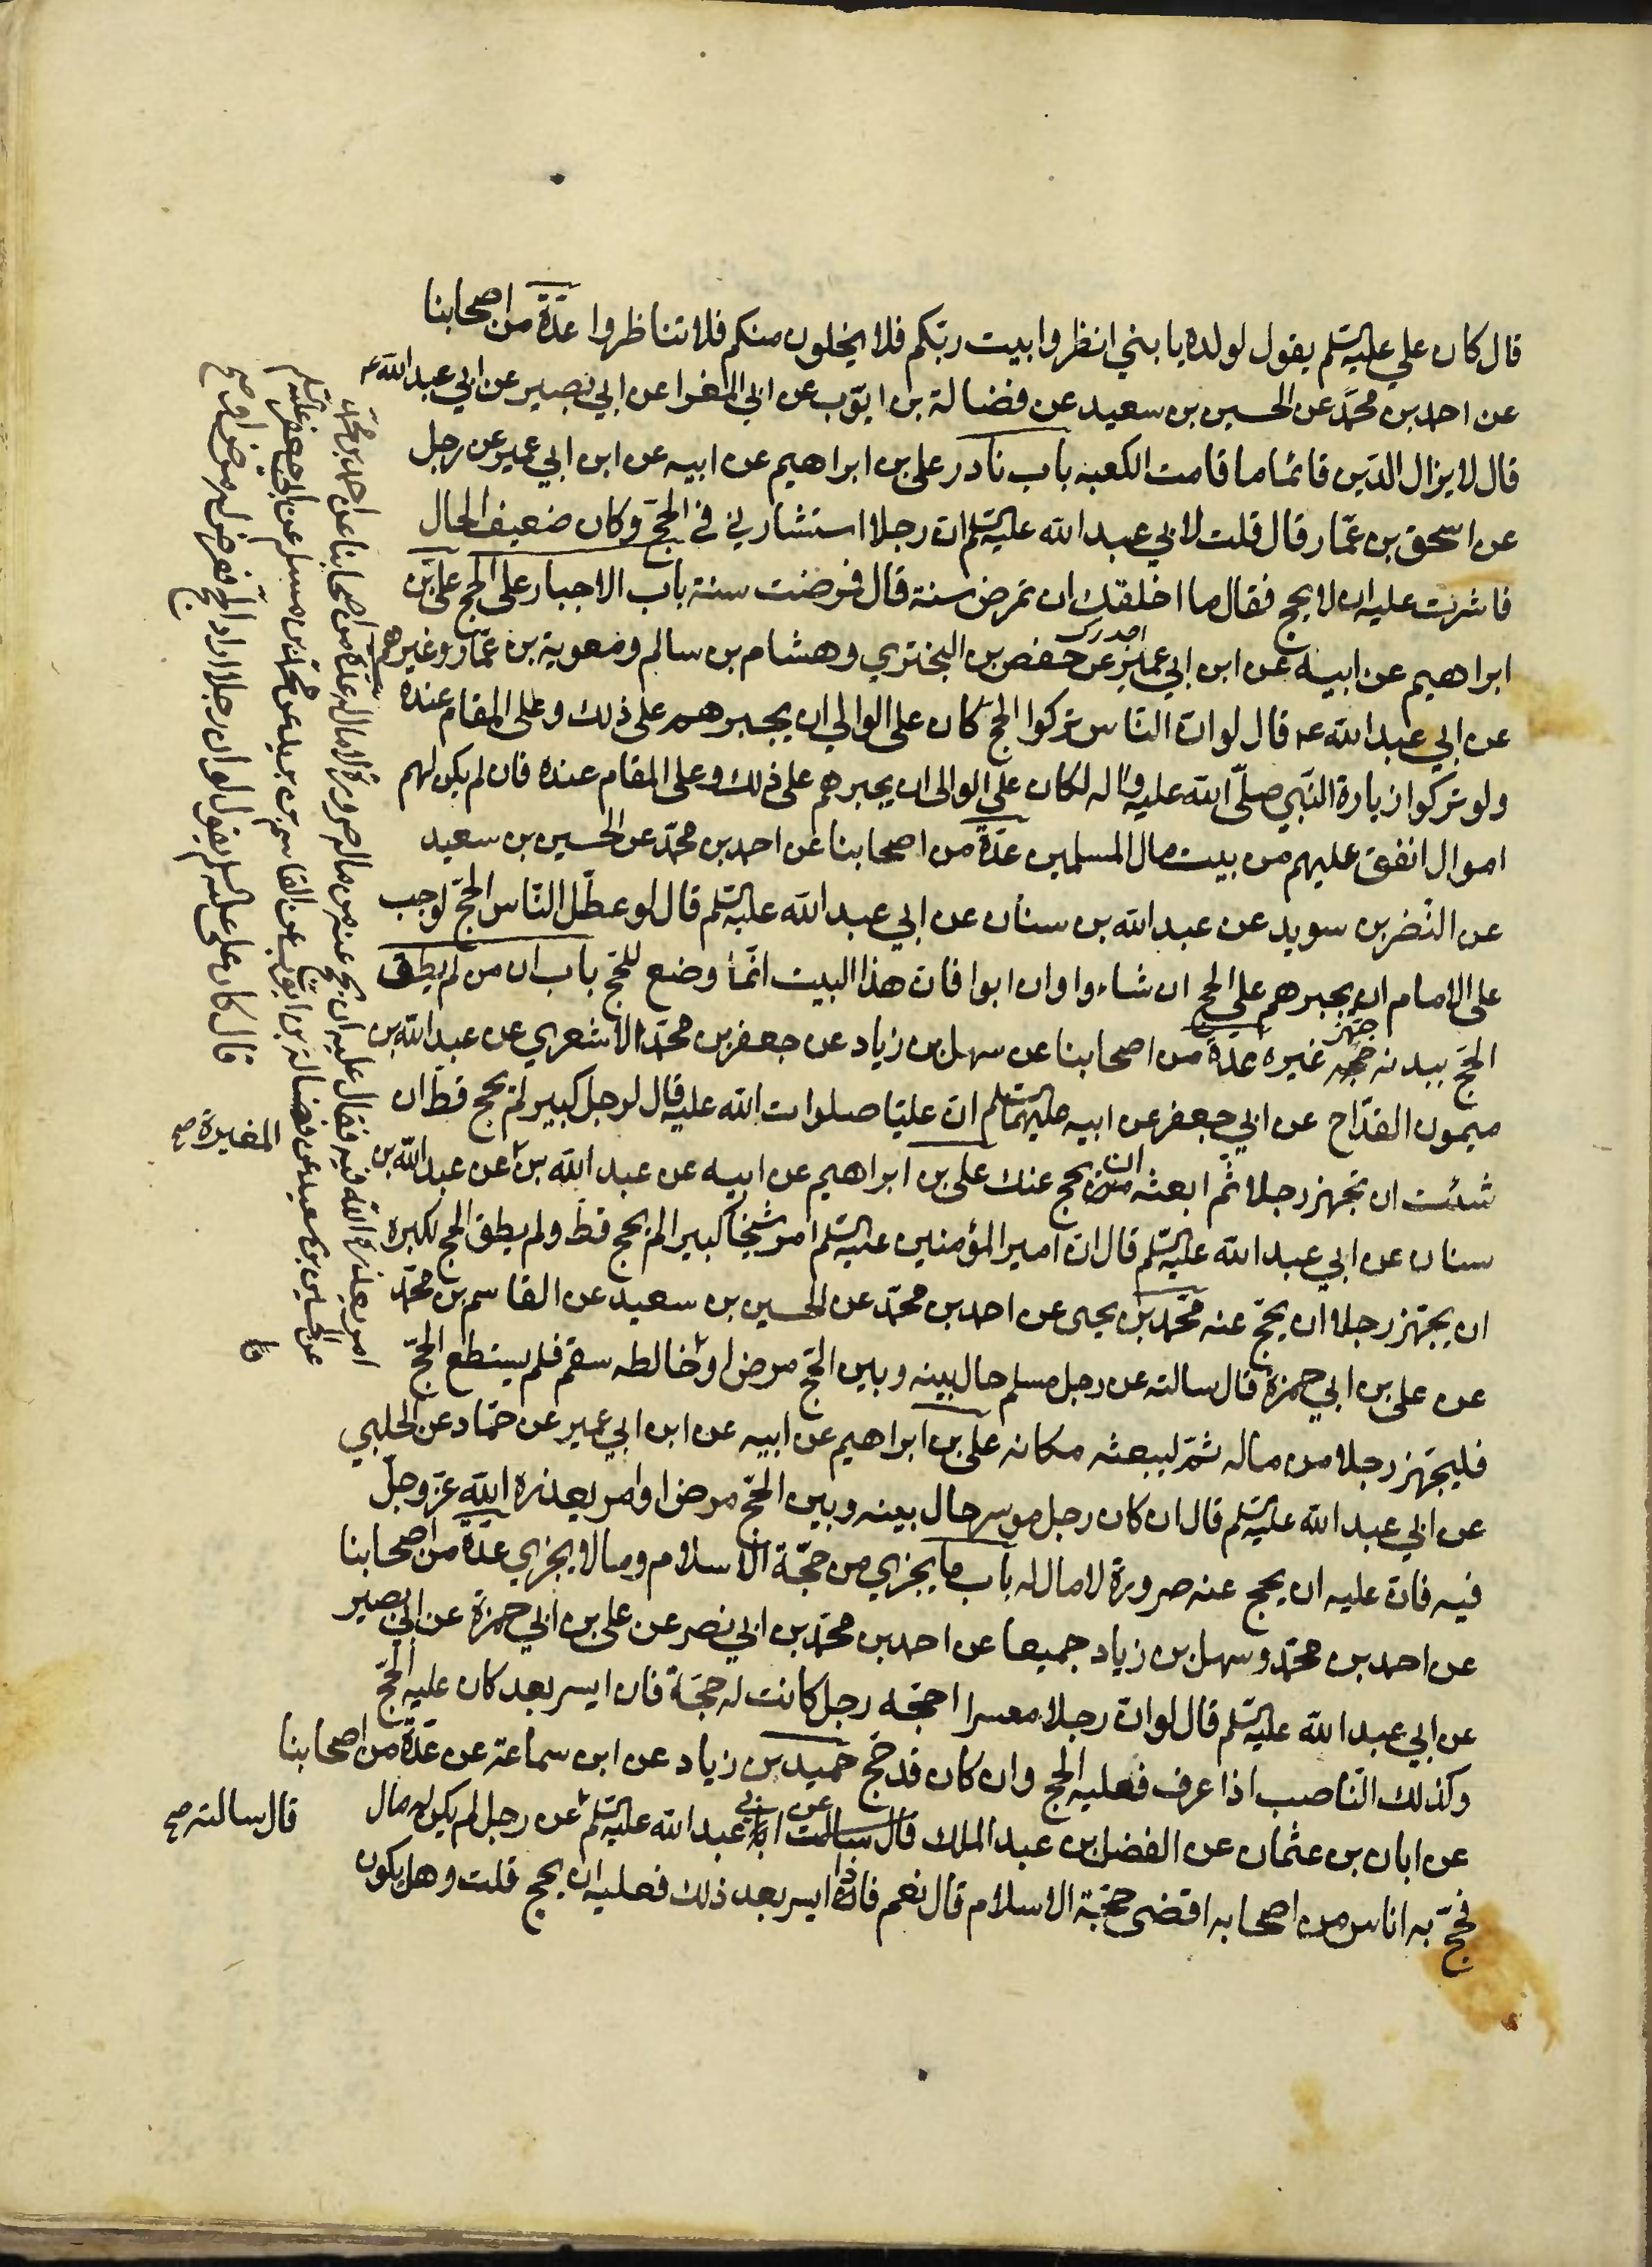 قال كان علي عليه السلم يقول لولده يا بني انظروا بيت ربكم فلا يخلون منكم فلا تناظروا عدة من اصحابنا
عن احمد بن محمد عن الحسين بن سعيد عن فضالة بن ايوب عن ابي المغرا عن ابي بصير عن ابي عبد الله ع
قال لا يزال الدين قائما ما قامت الكعبه باب نادر علي بن ابراهيم عن ابيه عن ابن ابي عمير عن رجل
عن اسحق بن عمار قال قلت لابي عبد الله عليه السلم ان رجلا استشارني في الحج وكان ضعيف الحال
فاشرت عليه ان لا يحج فقال ما اخلقك ان تمرض سنة قال فمرضت سنة باب الاجبار على الحج علي بن
ابراهيم عن ابيه عن ابن ابي عمير عن حفص بن البختري وهشام بن سالم ومعوية بن عمار وغيرهم
عن ابي عبد الله ع قال لو ان الناس تركوا الحج كان على الوالي ان يجبرهم على ذلك وعلى المقام عنده
ولو تركوا زيارة النبي صلى الله عليه واله لكان على الوالي ان يجبرهم على ذلك وعلى المقام عنده فان لم يكن لهم
اموال انفق عليهم من بيت مال المسلمين عدة من اصحابنا عن احمد بن محمد عن الحسين بن سعيد
عن النضر بن سويد عن عبد الله بن سنان عن ابي عبد الله عليه السلم قال لو عطل الناس الحج لوجب
على الامام ان يجبرهم على الحج ان شاءوا وان ابوا فان هذا البيت انما وضع للحج باب ان من لم يطق
الحج ببدنه جهز غيره عدة من اصحابنا عن سهل بن زياد عن جعفر بن محمد الاشعري عن عبد الله بن
ميمون القداح عن ابي جعفر عن ابيه عليهما السلم ان عليا صلوات الله عليه قال لرجل كبير لم يحج قط ان
شئت ان تجهز رجلا ثم ابعثه ان يحج عنك علي بن ابراهيم عن ابيه عن عبد الله بن عن عبد الله بن
سنان عن ابي عبد الله عليه السلم قال ان امير المؤمنين عليه السلم امر شيخا كبيرا لم يحج قط ولم يطق الحج لكبره
ان يجهز رجلا ان يحج عنه محمد بن يحيى عن احمد بن محمد عن الحسين بن سعيد عن القاسم بن محمد
عن علي بن ابي حمزة قال سالته عن رجل مسلم حال بينه وبين الحج مرض او خالطه سقم فلم يستطع الحج
فليجهز رجلا من ماله ثم ليبعثه مكانه علي بن ابراهيم عن ابيه عن ابن ابي عمير عن حماد عن الحلبي
عن ابي عبد الله عليه السلم قال ان كان رجل موسر حال بينه وبين الحج مرض او امر يعذره الله عز وجل
فيه فان عليه ان يحج عنه صرورة لا مال له باب ما يجزي من حجة الاسلام وما لا يجزي عدة من اصحابنا
عن احمد بن محمد وسهل بن زياد جميعا عن احمد بن محمد بن ابي نصر عن علي بن ابي حمزة عن ابي بصير
عن ابي عبد الله عليه السلم قال لو ان رجلا معسرا احجه رجل كانت له حجة فان ايسر بعد كان عليه الحج
وكذلك الناصب اذا عرف فعليه الحج وان كان قد حج حميد بن زياد عن ابن سماعة عن عدة من اصحابنا
عن ابان بن عثمان عن الفضل بن عبد الملك عن ابي عبد الله عليه السلم عن رجل لم يكن له مال
فحج به اناس من اصحابه اقضى حجة الاسلام قال نعم فاذا ايسر بعد ذلك فعليه ان يحج قلت وهل يكون
المغيرة صح
قال سالته صح
امر يعذره الله فيه فقال عليه ان يحج عنه من ماله صرورة لا مال له عدة من اصحابنا عن احمد بن محمد
عن الحسين بن سعيد عن فضالة بن ايوب عن القاسم بن بريد عن محمد بن مسلم عن ابي جعفر عليه السلم
قال كان علي عليه السلم يقول لو ان رجلا اراد الحج فعرض له مرض او